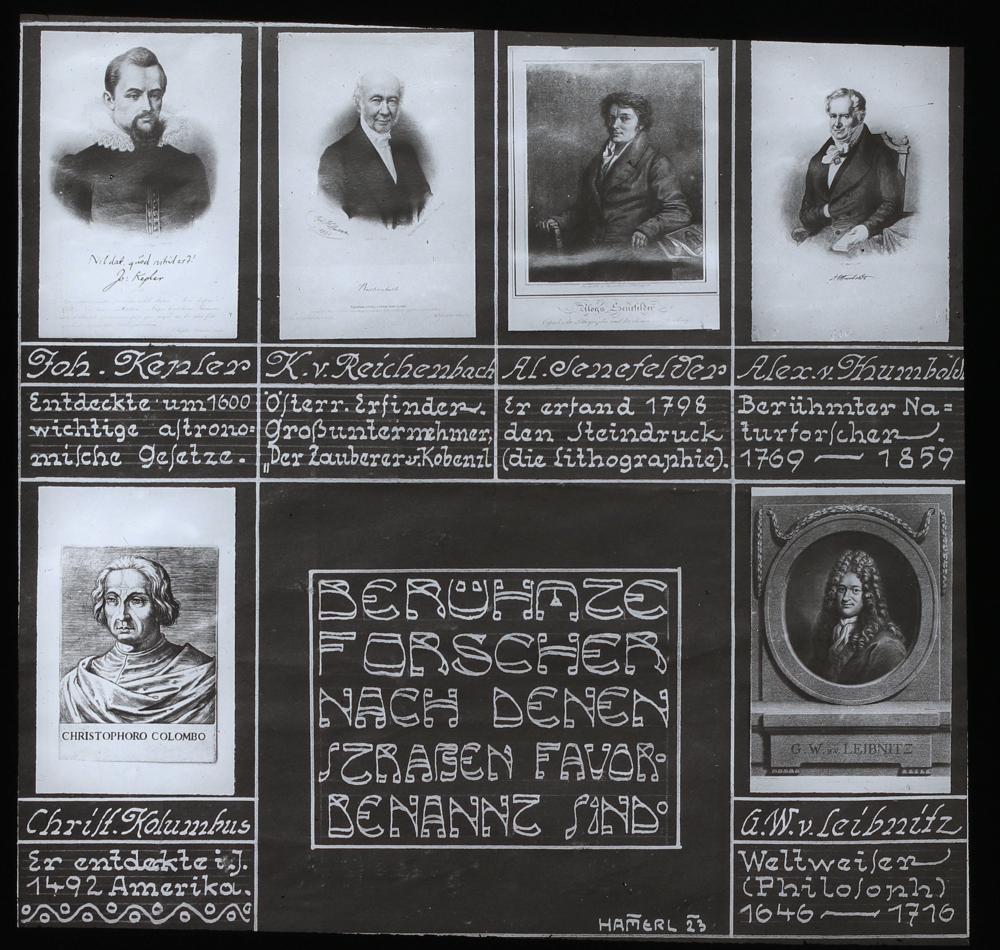 Nil dat, quod nihil est!
Jo: Kepler
Reichenbach
Aloys Senefelder
Joh. Kepler
K. v. Reichenbach
Al. Senefelder
Alex. v. Humboldt
Entdeckte um 1600
wichtige aſtrono=
miſche Geſetze.
Öſterr. Erfinder.
Großunternehmer,
„Der Zauberer v. Kobenzl
Er erfand 1798
den Steindruck
(die Lithographie).
Berühmter Na=
turforſcher.
1769 — 1859
CHRISTOPHORO COLOMBO
Chriſt. Kolumbus
Er entdekte i. J.
1492 Amerika.
BERÜHMTE
FORSCHER
NACH DENEN
STRAßEN FAVOR-
BENANNT SIND.
HAMERL 23
G. W. von LEIBNITZ
G. W. v. Leibnitz
Weltweiſer
(Philoſoph)
1646 — 1716